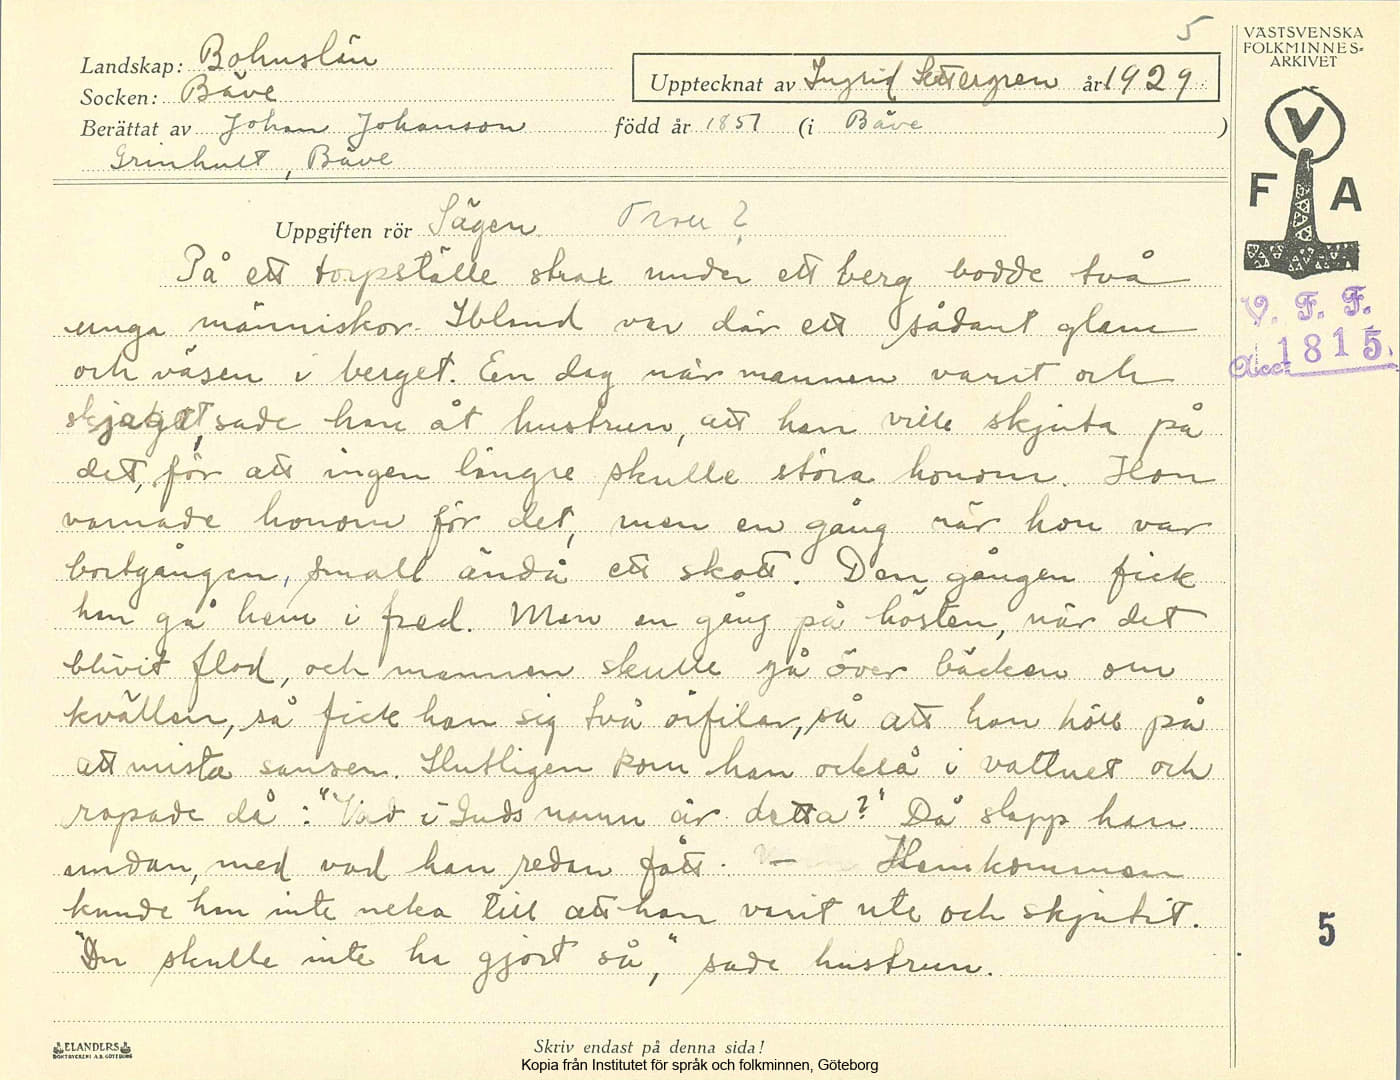 5
Landskap: Bohuslän
Socken: Bäve
Berättat av Johan Johanson
Grinhult, Bäve
Upptecknat av Ingrid Settergren år 1929
född år 1857 (i Bäve )
VÄSTSVENSKA
FOLKMINNES=
ARKIVET
V
F A
V. F. F.
Acc. 1815.
Uppgiften rör Sägen. Troll?
På ett torpställe strax under ett berg bodde två
unga människor. Ibland var där ett sådant glam
och väsen i berget. En dag när mannen varit och
jagat, sade han åt hustrun, att han ville skjuta på
det, för att ingen längre skulle störa honom. Hon
varnade honom för det, men en gång när hon var
bortgången, small ändå ett skott. Den gången fick
han gå hem i fred. Men en gång på hösten, när det
blivit flod, och mannen skulle gå över bäcken om
kvällen, så fick han sig två örfilar, så att han höll på
att mista sansen. Slutligen kom han också i vattnet och
ropade då: "Vad i Guds namn är detta?" Då slapp han
undan, med vad han redan fått. — Hemkommen
kunde han inte neka till att han varit ute och skjutit.
"Du skulle inte ha gjort så," sade hustrun.
5
ELANDERS
BOKTRYCKERI A.B. GÖTEBORG
Skriv endast på denna sida!
Kopia från Institutet för språk och folkminnen, Göteborg